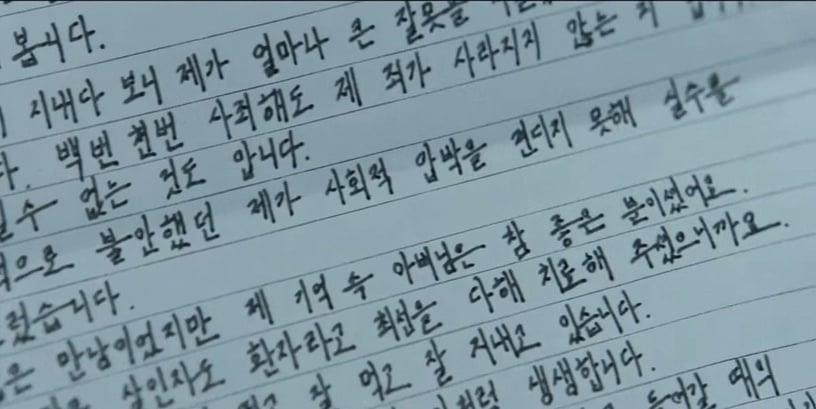 봅니다.
지내다 보니 제가 얼마나 큰 잘못을
백번 천번 사죄해도 제 죄가 사라지지 않는
수 없는 것도 압니다.
적으로 불안했던 제가 사회적 압박을 견디지 못해 실수를
렀습니다.
은 만남이었지만 제 기억 속 아버님은 참 좋은 분이셨어요.
살인자도 환자라고 최선을 다해 치료해 주셨으니까요.
잘 먹고 잘 지내고 있습니다.
처럼 생생합니다.
들어갈 때의